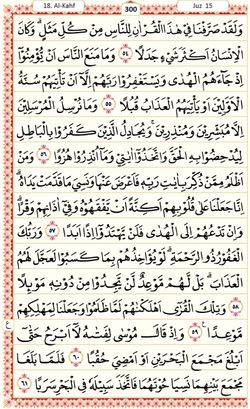 18. Al-Kahf
300
Juz 15
وَلَقَدْ صَرَّفْنَا فِي هٰذَا الْقُرْاٰنِ لِلنَّاسِ مِنْ كُلِّ مَثَلٍ ۗ وَكَانَ
الْاِنْسَانُ اَكْثَرَ شَيْءٍ جَدَلًا ٥٤ وَمَا مَنَعَ النَّاسَ اَنْ يُّؤْمِنُوْٓا
اِذْ جَاۤءَهُمُ الْهُدٰى وَيَسْتَغْفِرُوْا رَبَّهُمْ اِلَّآ اَنْ تَأْتِيَهُمْ سُنَّةُ
الْاَوَّلِيْنَ اَوْ يَأْتِيَهُمُ الْعَذَابُ قُبُلًا ٥٥ وَمَا نُرْسِلُ الْمُرْسَلِيْنَ
اِلَّا مُبَشِّرِيْنَ وَمُنْذِرِيْنَ ۚ وَيُجَادِلُ الَّذِيْنَ كَفَرُوْا بِالْبَاطِلِ
لِيُدْحِضُوْا بِهِ الْحَقَّ وَاتَّخَذُوْٓا اٰيٰتِيْ وَمَآ اُنْذِرُوْا هُزُوًا ٥٦ وَمَنْ
اَظْلَمُ مِمَّنْ ذُكِّرَ بِاٰيٰتِ رَبِّهٖ فَاَعْرَضَ عَنْهَا وَنَسِيَ مَا قَدَّمَتْ يَدٰهُ ۗ
اِنَّا جَعَلْنَا عَلٰى قُلُوْبِهِمْ اَكِنَّةً اَنْ يَّفْقَهُوْهُ وَفِيْٓ اٰذَانِهِمْ وَقْرًا ۗ
وَاِنْ تَدْعُهُمْ اِلَى الْهُدٰى فَلَنْ يَّهْتَدُوْٓا اِذًا اَبَدًا ٥٧ وَرَبُّكَ
الْغَفُوْرُ ذُو الرَّحْمَةِ ۗ لَوْ يُؤَاخِذُهُمْ بِمَا كَسَبُوْا لَعَجَّلَ لَهُمُ
الْعَذَابَ ۗ بَلْ لَّهُمْ مَّوْعِدٌ لَّنْ يَّجِدُوْا مِنْ دُوْنِهٖ مَوْىِٕلًا
٥٨ وَتِلْكَ الْقُرٰٓى اَهْلَكْنٰهُمْ لَمَّا ظَلَمُوْا وَجَعَلْنَا لِمَهْلِكِهِمْ
مَّوْعِدًا ٥٩ وَاِذْ قَالَ مُوْسٰى لِفَتٰىهُ لَآ اَبْرَحُ حَتّٰىٓ
اَبْلُغَ مَجْمَعَ الْبَحْرَيْنِ اَوْ اَمْضِيَ حُقُبًا ٦٠ فَلَمَّا بَلَغَا
مَجْمَعَ بَيْنِهِمَا نَسِيَا حُوْتَهُمَا فَاتَّخَذَ سَبِيْلَهٗ فِى الْبَحْرِ سَرَبًا ٦١